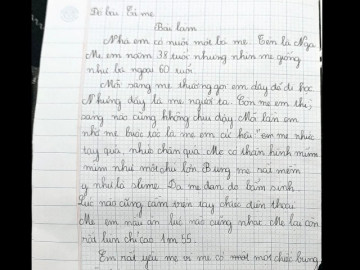 Đề bài: Tả mẹ
Bài làm
Nhà em có nuôi một bà mẹ. Tên là Nga
Mẹ em năm 38 tuổi nhưng nhìn mẹ giống
như bà ngoài 60 tuổi.
Mỗi sáng mẹ thường gọi em dậy để đi học
Nhưng đấy là mẹ người ta. Còn mẹ em thì
sáng nào cũng không chịu dậy. Mỗi lần em
nhờ mẹ buộc tóc là mẹ em cứ kêu "em mẹ nhức
tay quá, nhức chân quá. Mẹ có thân hình mũm
mĩm như một chú lợn. Bụng mẹ rất mềm
g như là slime. Da mẹ đen do bẩm sinh.
Lúc nào cũng cầm trên tay chiếc điện thoại
Mẹ em nấu ăn lúc nào cũng nhạt. Mẹ lại còn
rất lùn chỉ cao 1m 55.
Em rất yêu mẹ vì mẹ có một chiếc bụng